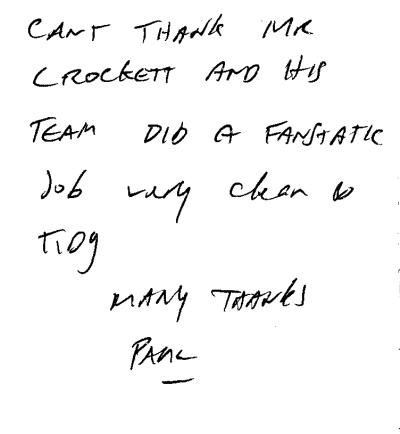 CANT THANK MR
CROCKETT AND HIS
TEAM DID A FANSTATIC
Job very clean &
TIDY
MANY THANKS
PAUL